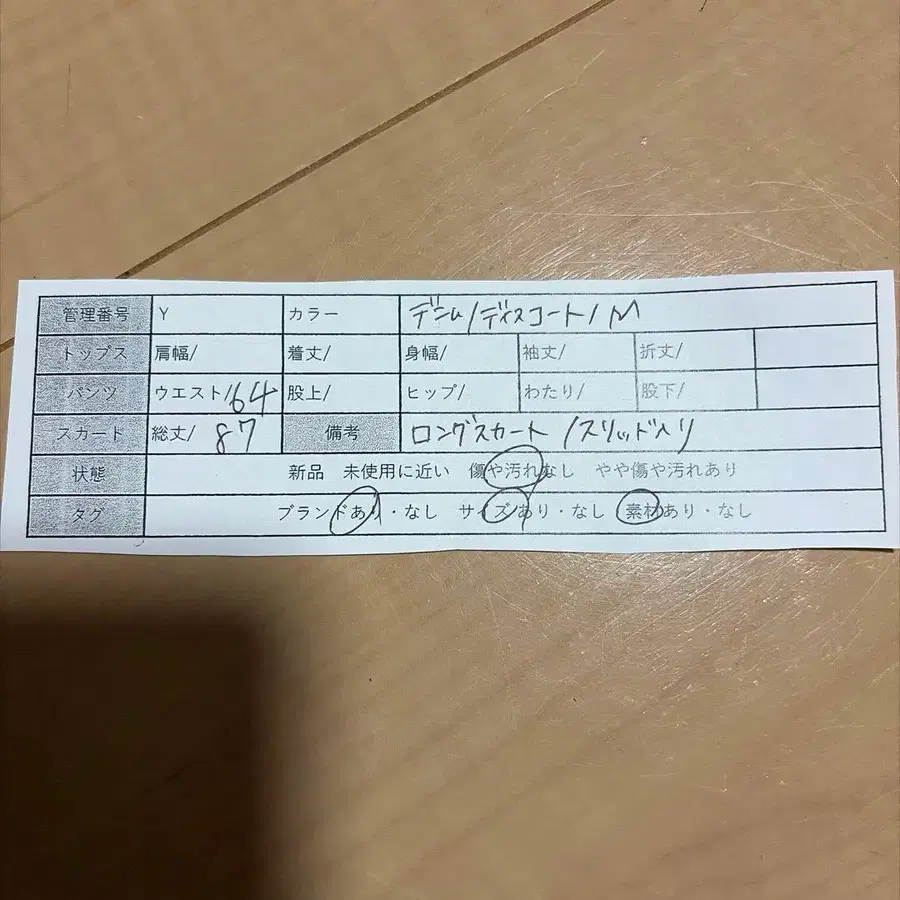 管理番号 Y カラー デニム/ディスコート/M
トップス 肩幅/ 着丈/ 身幅/ 袖丈/ 折丈/
パンツ ウエスト/64 股上/ ヒップ/ わたり/ 股下/
スカート 総丈/ 87 備考 ロングスカート /スリッド入り
状態 新品 未使用に近い 傷や汚れなし やや傷や汚れあり
タグ ブランドあり・なし サイズあり・なし 素材あり・なし